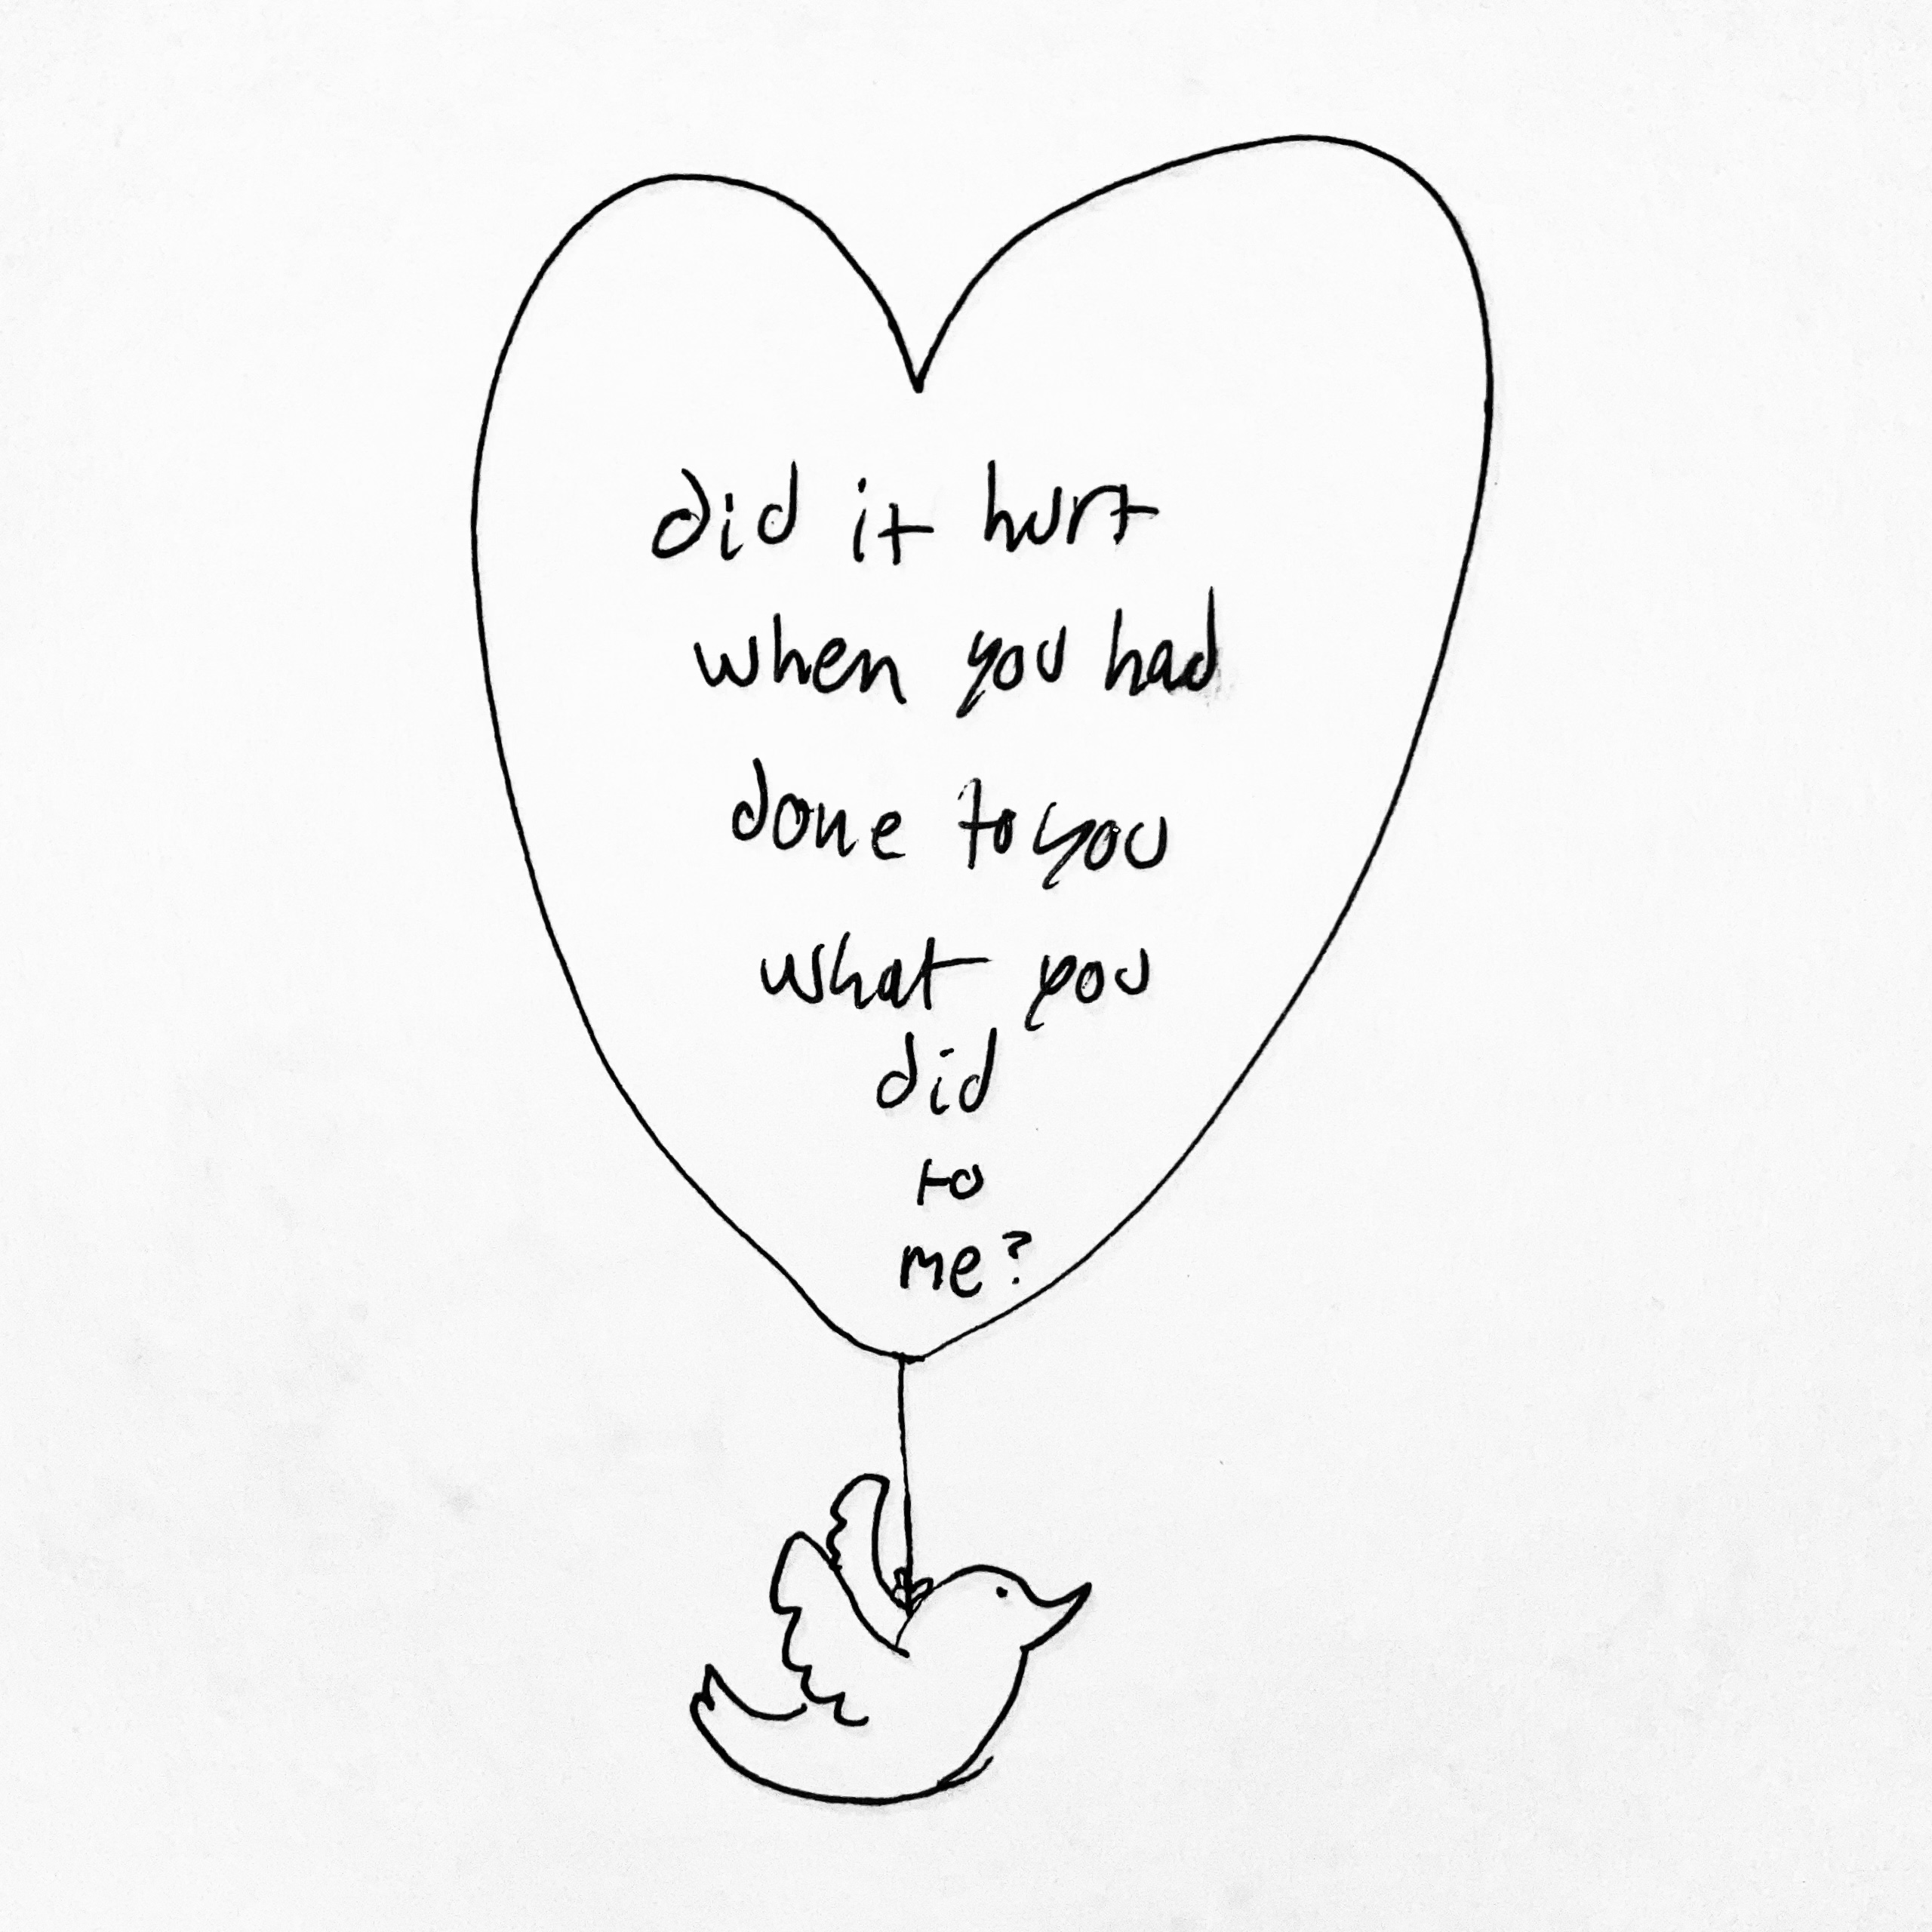 did it hurt
when you had
done to you
what you
did
to
me?